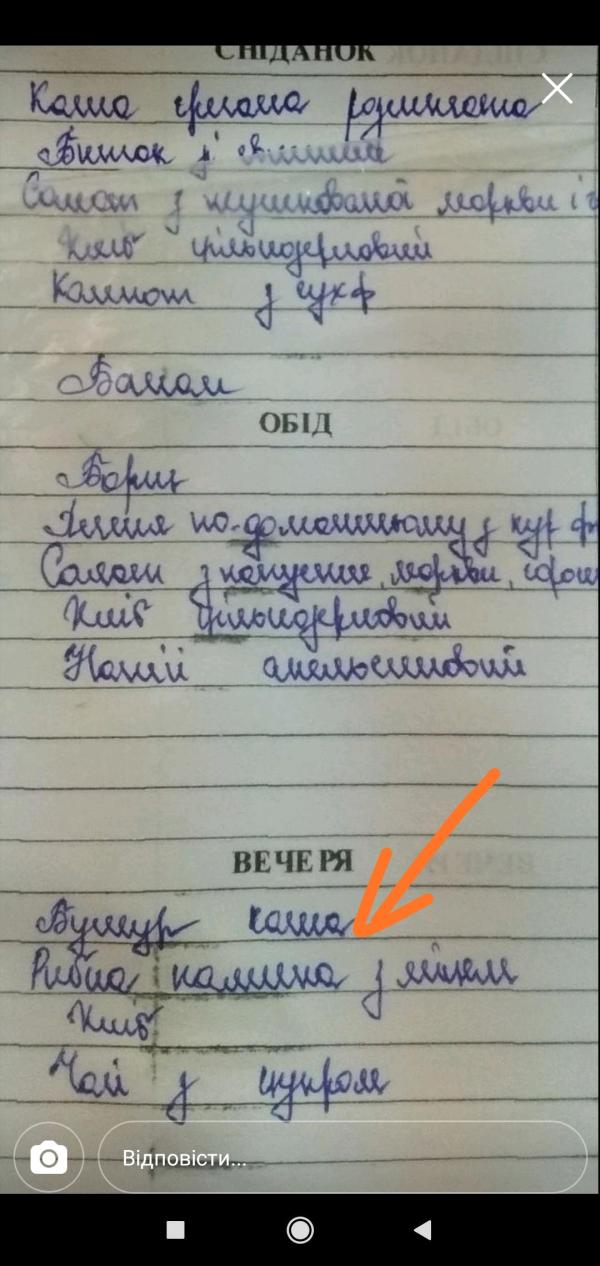 СНІДАНОК
Каша гречана розсипчаста
Биток з свинини
Салат з тушкованої моркви і
Хліб цільнозерновий
Компот з сухф
Банан
ОБІД
Борщ
Печеня по-домашньому з кур ф
Салат з капусти, моркви, горош
Хліб цільнозерновий
Напій апельсиновий
ВЕЧЕРЯ
Булгур каша
Рибна паличка з яйцем
Хліб
Чай з цукром
Відповісти...